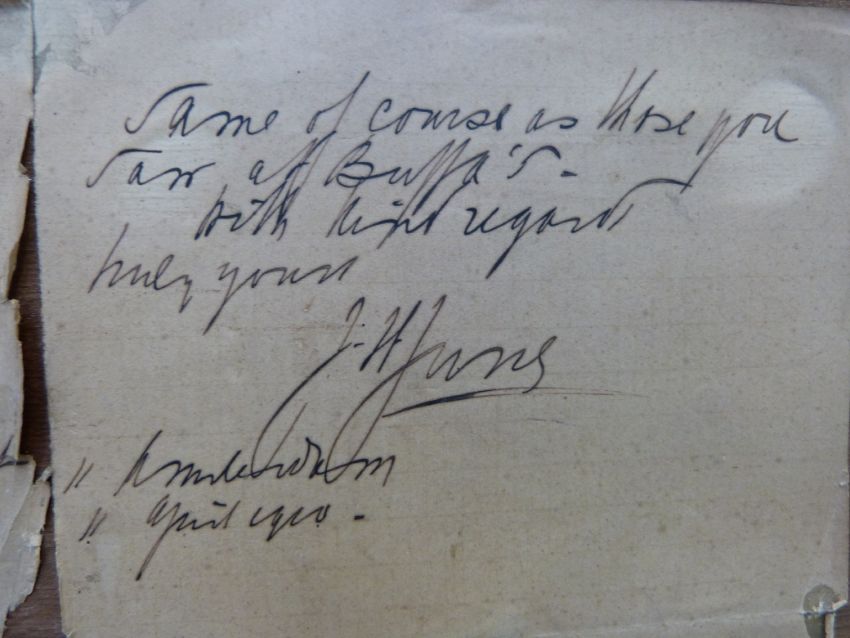 Same of course as those you
saw at Buffa's -
with kind regards
truly yours
J. H. Jurres
" Amsterdam
" April 1910 -